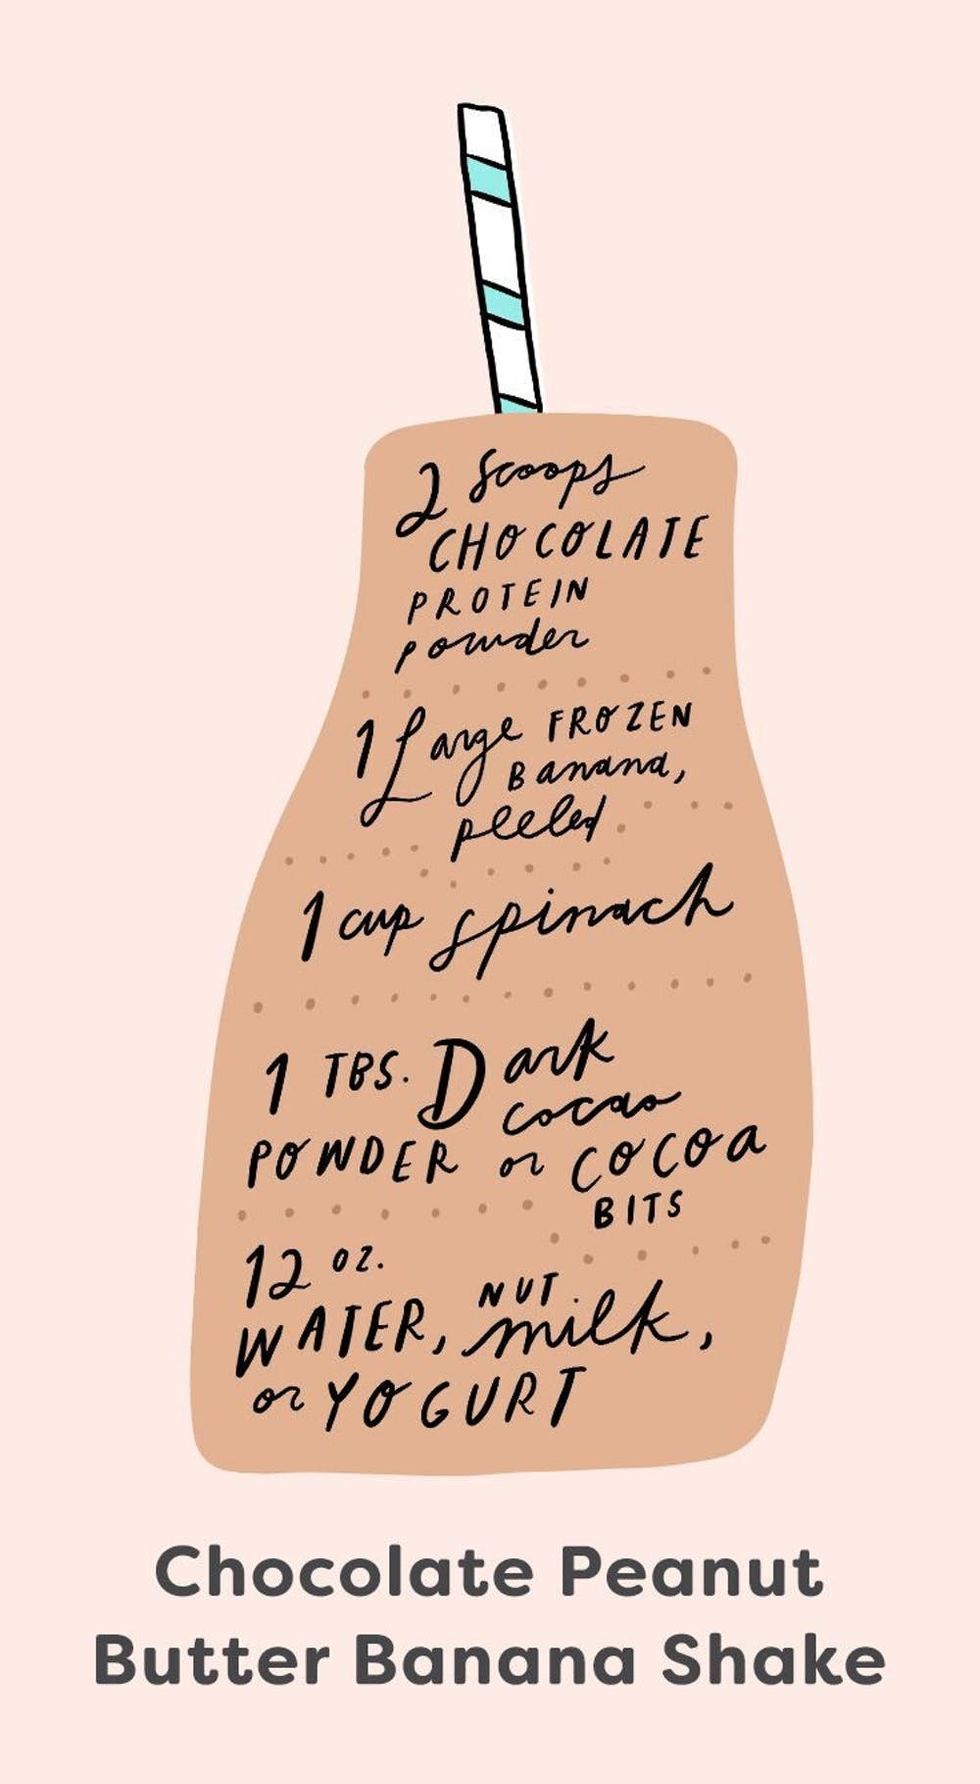 2 Scoops
CHOCOLATE
PROTEIN
powder
1 Large FROZEN
Banana,
peeled
1 cup spinach
1 TBS. Dark
cocao
POWDER or COCOa
BITS
12 oz.
WATER, NUT milk,
or YOGURT
Chocolate Peanut
Butter Banana Shake